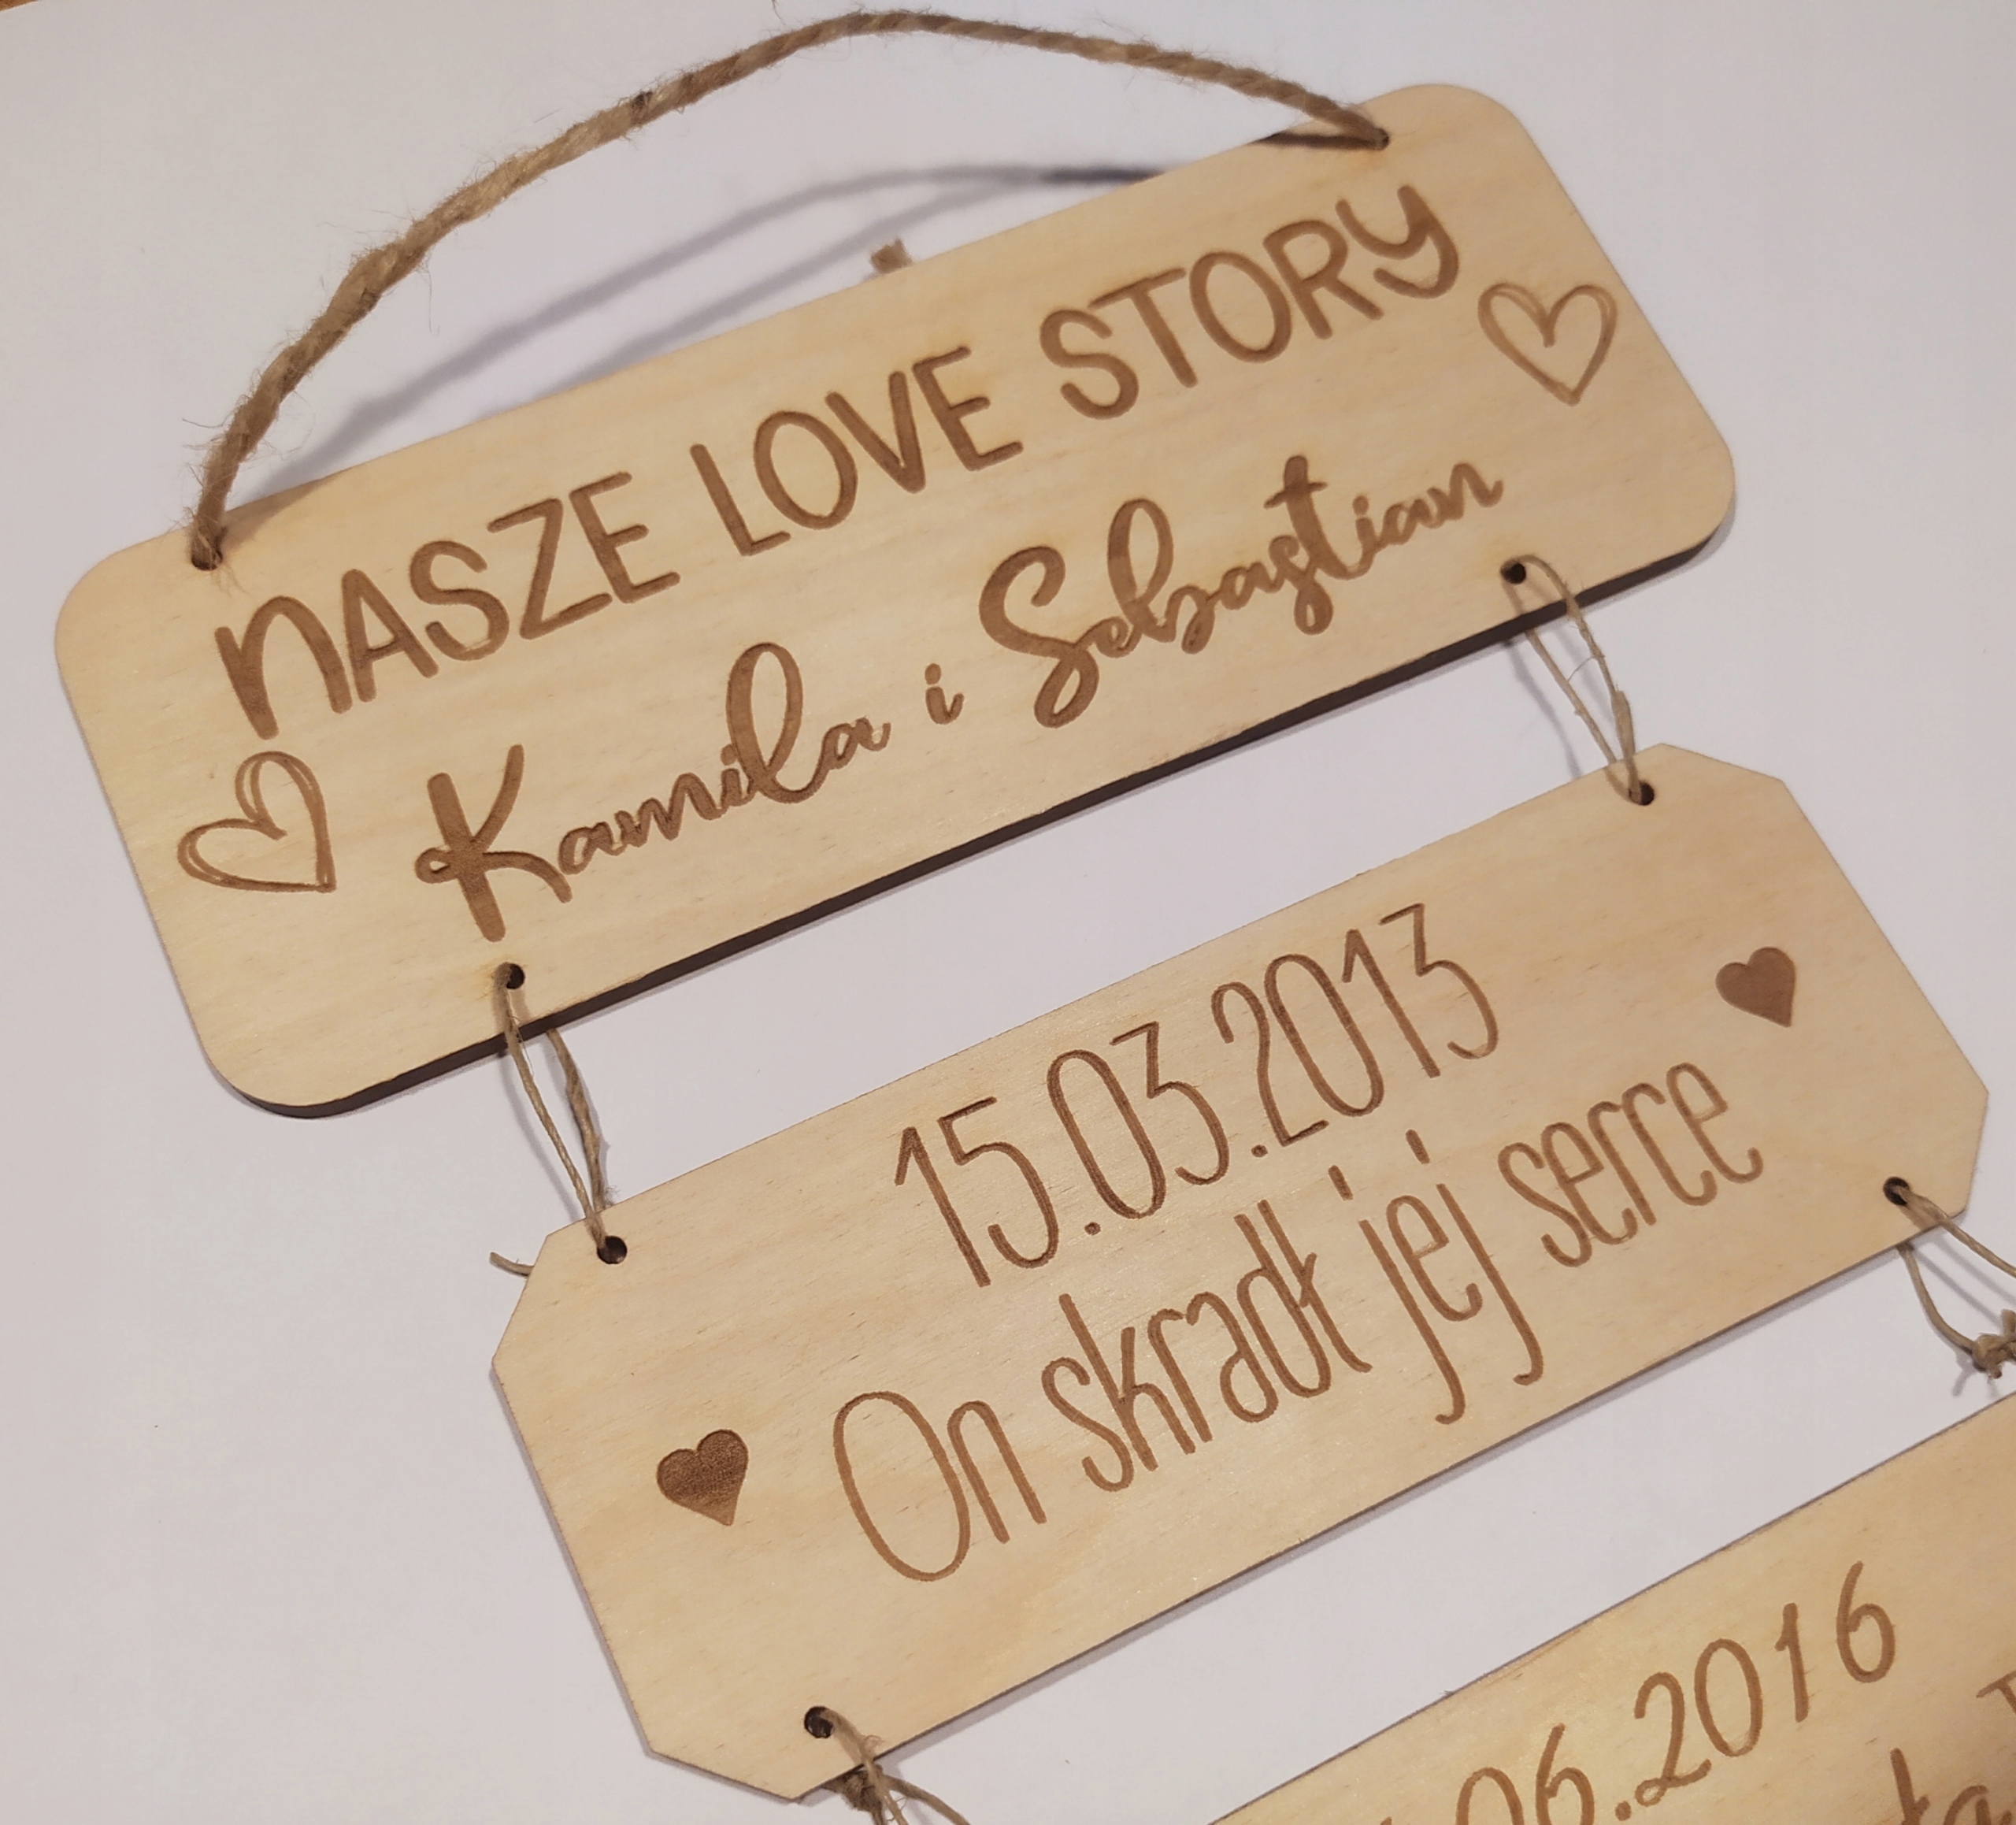 NASZE LOVE STORY
Kamila i Sebastian
15.03.2013
On skradł jej serce
06.2016